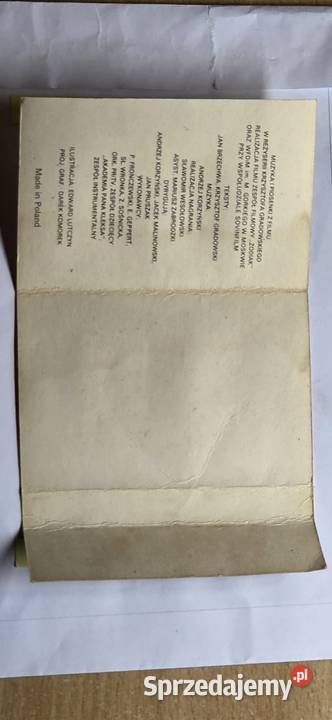 MUZYKA I PIOSENKI Z FILMU
W REŻYSERII KRZYSZTOFA GRADOWSKIEGO
REALIZACJA FILMU ZESPÓŁ FILMOWY „ZODIAK”
ORAZ WFDiM im. M. GORKIEGO W MOSKWIE
PRZY WSPÓŁUDZIALE SOVINFILM
TEKSTY
JAN BRZECHWA, KRZYSZTOF GRADOWSKI
MUZYKA
ANDRZEJ KORZYŃSKI
REALIZACJA NAGRANIA:
SŁAWOMIR WESOŁOWSKI
ASYST. MARIUSZ ZABRODZKI
DYRYGUJĄ:
ANDRZEJ KORZYŃSKI, JACEK MALINOWSKI
JAN PRUSZAK
WYKONAWCY
P. FRONCZEWSKI, E. GEPPERT,
SŁ. WRONKA, Z. SOŚNICKA,
ORK. PRiTV, ZESPÓŁ DZIECIĘCY
„AKADEMIA PANA KLEKSA”
ZESPÓŁ INSTRUMENTALNY
ILUSTRACJA: EDWARD LUTCZYN
PROJ. GRAF. DAREK KOMOREK
Made in Poland
Sprzedajemy.pl